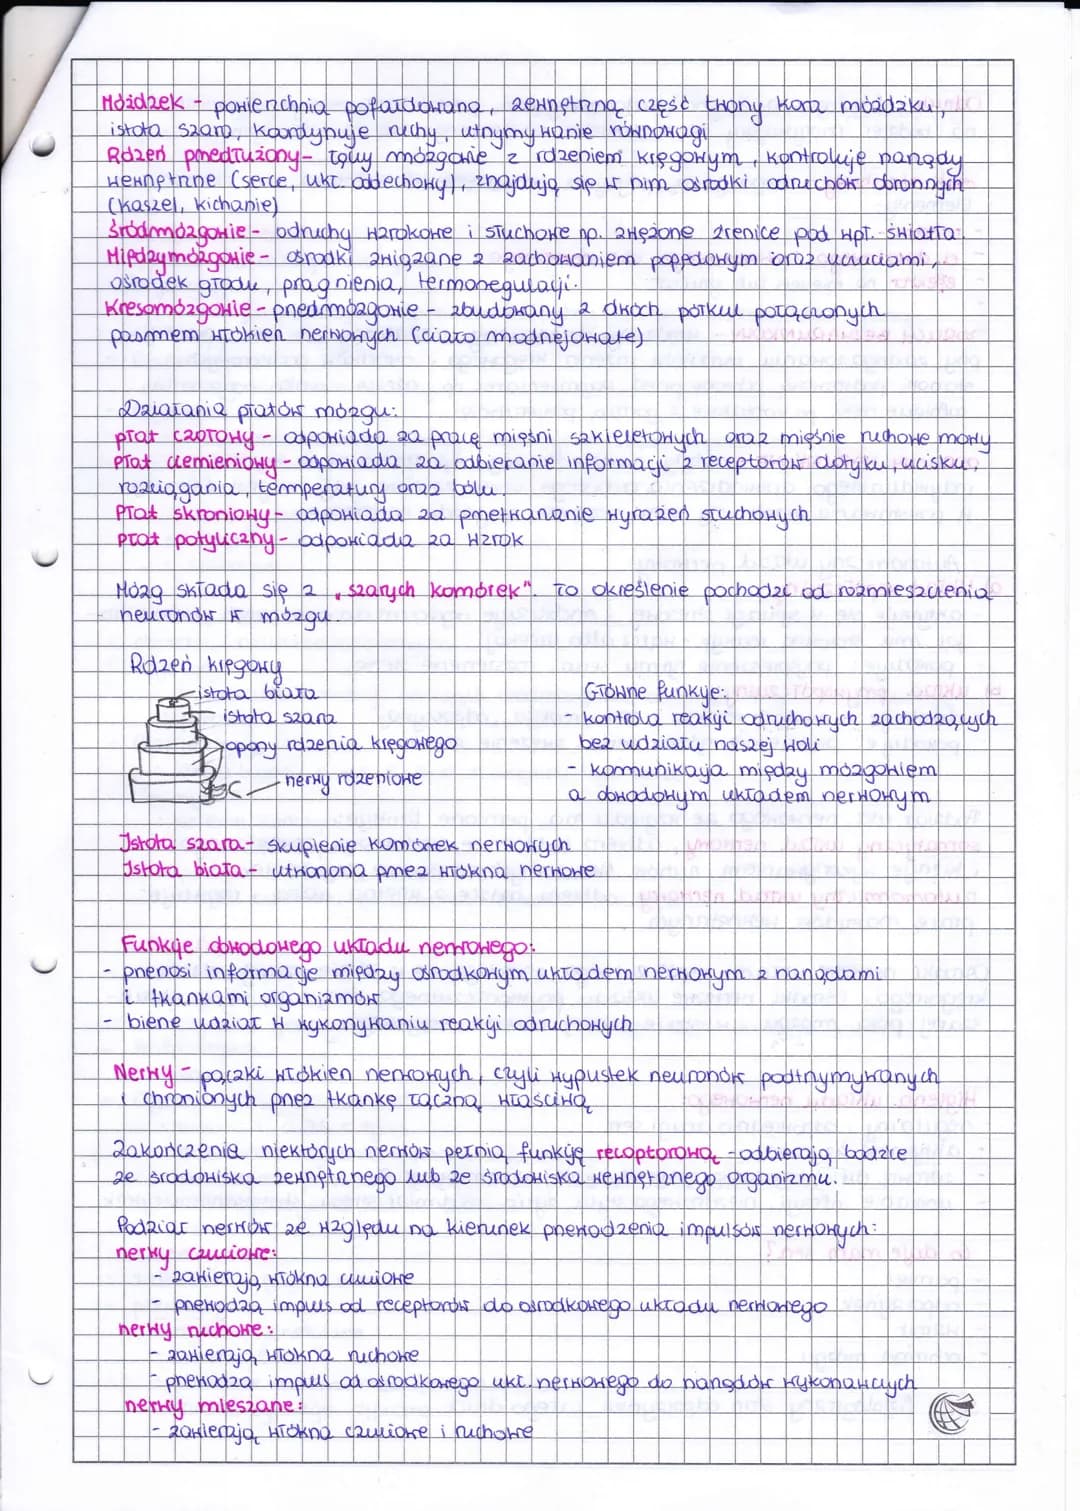 Móżdżek - powierzchnia pofałdowana, zewnętrzną część tworzy kora móżdżku,
istota szara, koordynuje ruchy, utrzymywanie równowagi
Rdzeń przedłużony - łączy mózgowie z rdzeniem kręgowym, kontroluje narządy
wewnętrzne (serce, ukł. oddechowy), znajdują się w nim ośrodki odruchów obronnych
(kaszel, kichanie)
Śródmózgowie - odruchy wzrokowe i słuchowe np. zwężone źrenice pod wpł. światła.
Międzymózgowie - ośrodki związane z zachowaniem popędowym oraz uczuciami,
ośrodek głodu, pragnienia, termoregulacji.
Kresomózgowie - przedmózgowie - zbudowany z dwóch półkul połączonych
pasmem włókien nerwowych (ciało modzelowate)
Działania płatów mózgu:
płat czołowy - odpowiada za pracę mięśni szkieletowych oraz mięśnie ruchowe mowy
Płat ciemieniowy - odpowiada za odbieranie informacji z receptorów dotyku, ucisku,
rozciągania, temperatury oraz bólu.
Płat skroniowy - odpowiada za przetwarzanie wyrażeń słuchowych
płat potyliczny - odpowiada za wzrok
Mózg składa się z "szarych komórek". To określenie pochodzi od rozmieszczenia
neuronów w mózgu.
Rdzeń kręgowy
istota biała
istota szara
opony rdzenia kręgowego
nerwy rdzeniowe
Główne funkcje:
- kontrola reakcji odruchowych zachodzących
bez udziału naszej woli
- komunikacja między mózgowiem
a obwodowym układem nerwowym
Istota szara - skupienie komórek nerwowych
Istota biała - utworzona przez włókna nerwowe
Funkcje obwodowego układu nerwowego:
- przenosi informacje między ośrodkowym układem nerwowym z narządami
i tkankami organizmów
- bierze udział w wykonywaniu reakcji odruchowych
Nerwy - pączki włókien nerwowych, czyli wypustek neuronów podtrzymywanych
i chronionych przez tkankę łączną właściwą
Zakończenia niektórych nerwów pełnią funkcję receptorową - odbierają bodźce
ze środowiska zewnętrznego lub ze środowiska wewnętrznego organizmu.
Podział nerwów ze względu na kierunek przewodzenia impulsów nerwowych:
nerwy czuciowe:
- zawierają włókna czuciowe
- przewodzą impuls od receptorów do ośrodkowego układu nerwowego
nerwy ruchowe:
- zawierają włókna ruchowe
- przewodzą impuls od ośrodkowego ukł. nerwowego do narządów wykonawczych
nerwy mieszane:
- zawierają włókna czuciowe i ruchowe